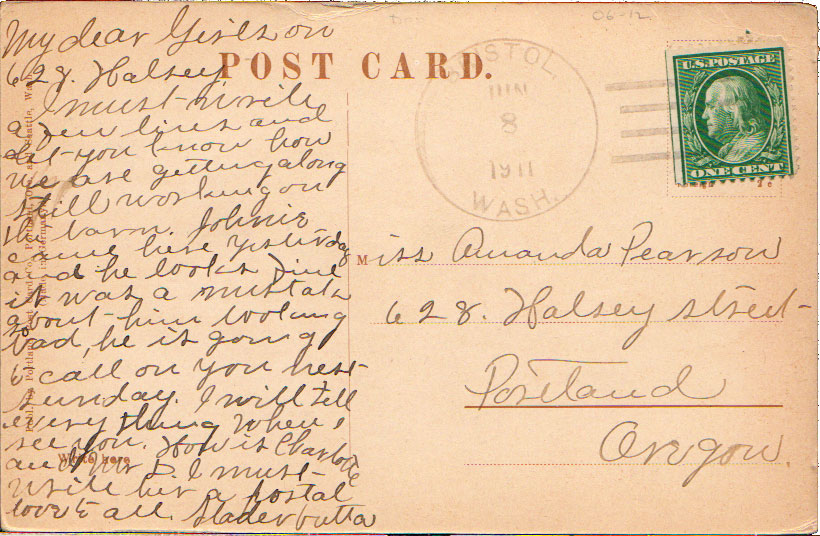 My dear Girls on
628. Halsey
I must write
a few lines and
let you know how
we are getting along
still working on
the barn. Johnie
came here yesterday
and he looks fine
it was a mistake
about him looking
bad, he is going
to call on you next
Sunday. I will tell
everything when I
see you. How is Charlotte
and I must
write her a postal
love to all.
POST CARD.
BRISTOL,
JUN
8
1911
WASH.
U.S. POSTAGE
ONE CENT
06-12
Miss Amanda Pearson
628. Halsey street
Portland
Oregon.
Write here